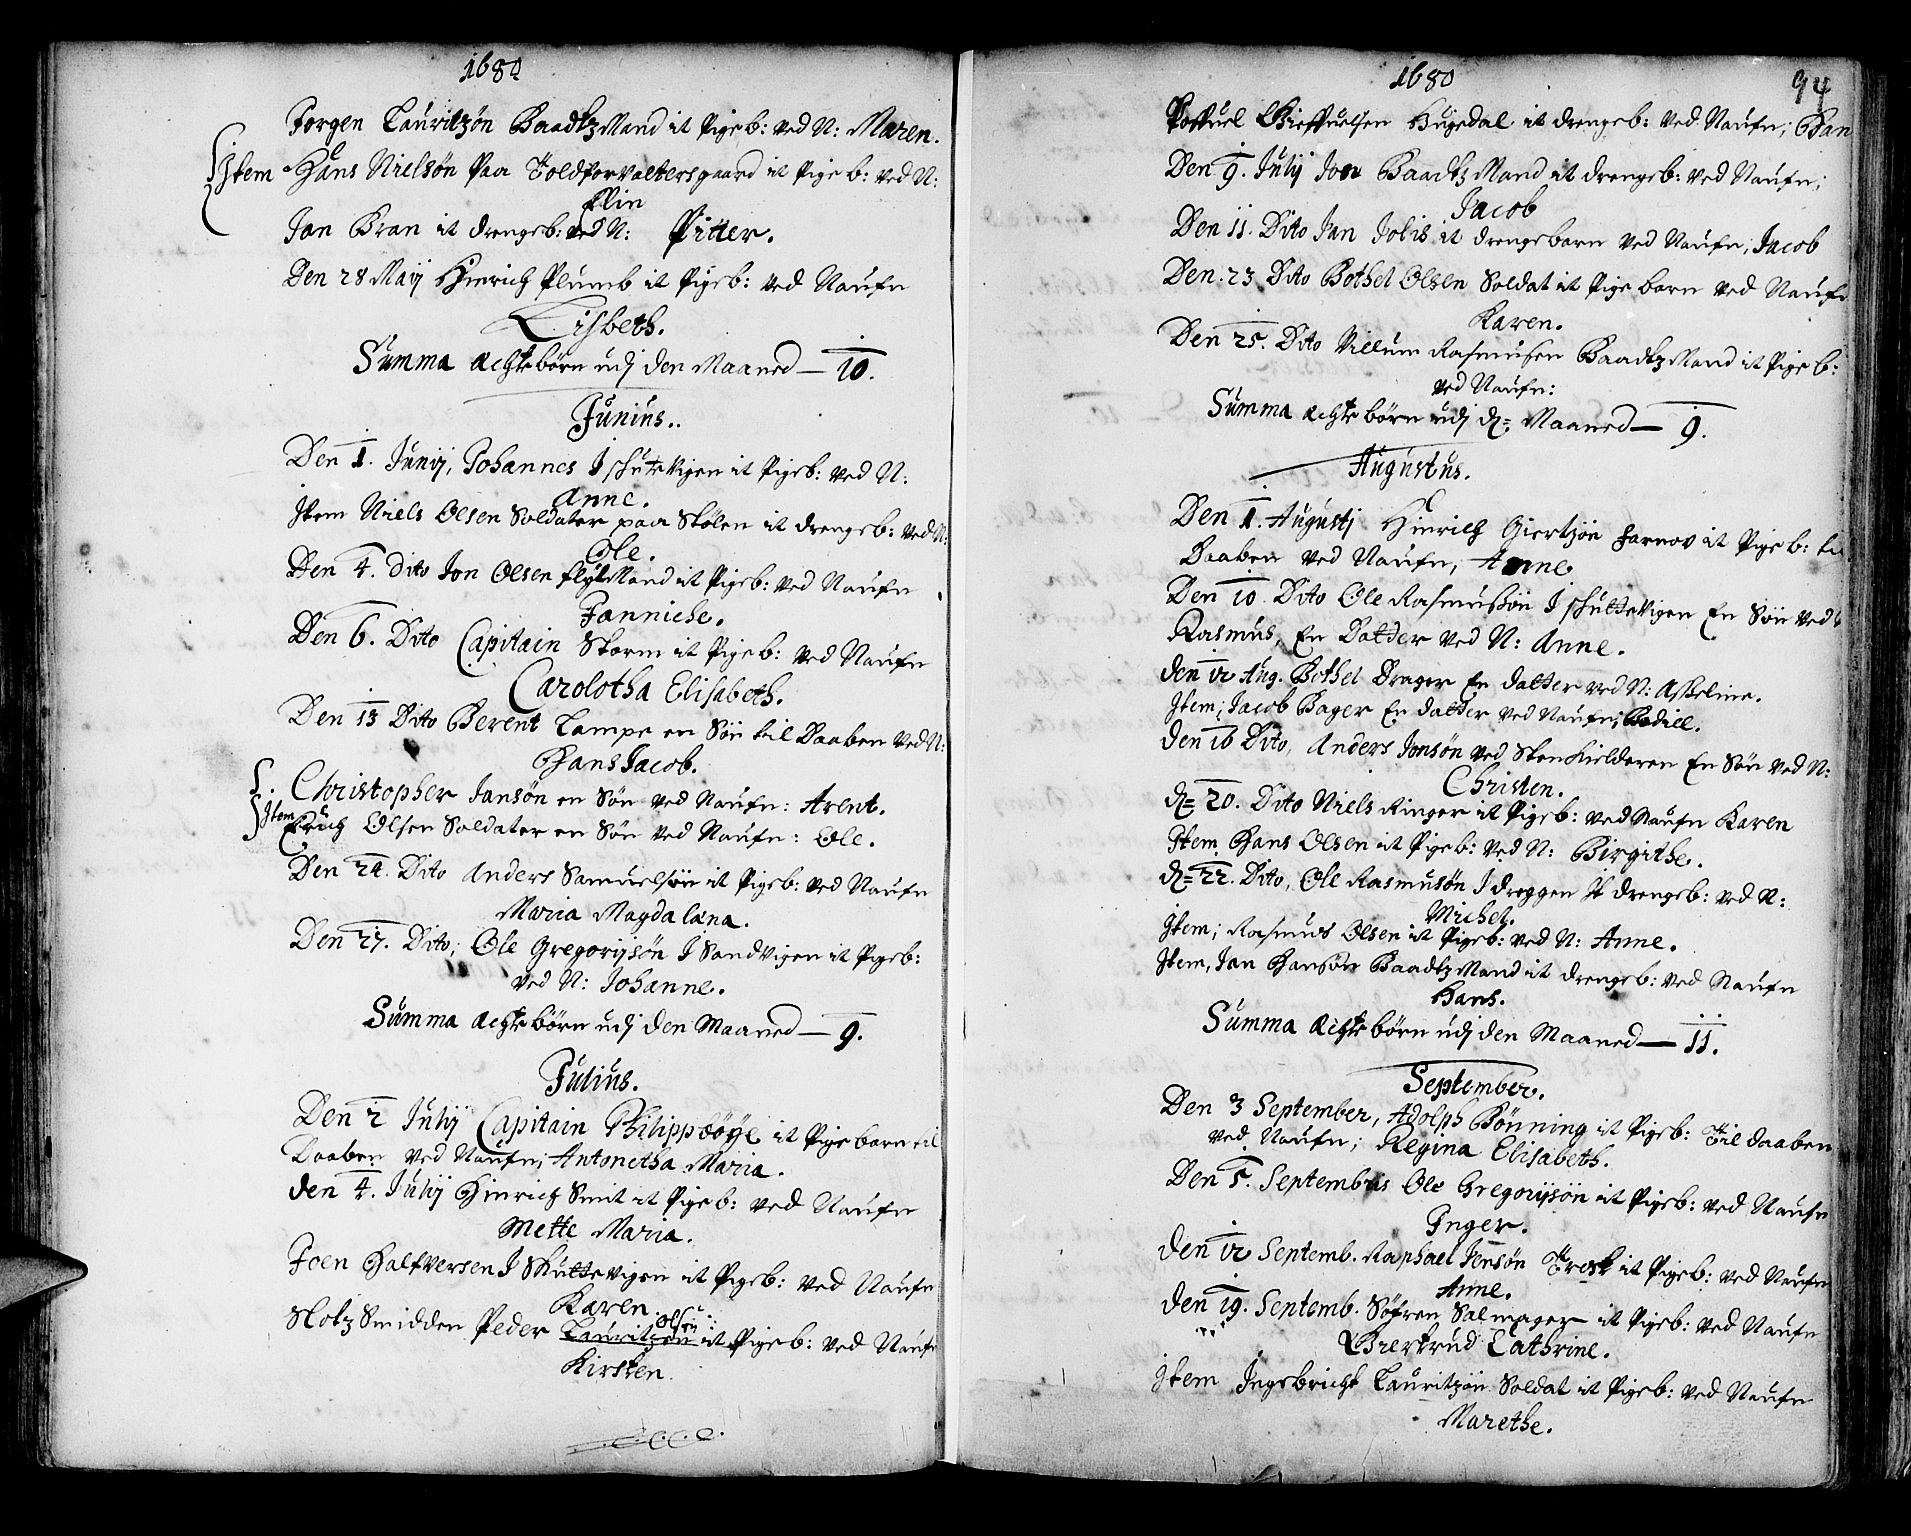 1680
Jørgen Lauritzøn Baadtz Mand it Pigeb: ved N: Maren.
Item Hans Nielsøn paa Toldforvaltersgaard it Pige b: ved N:
Elin
Jan Bran it drengeb: ved N: Pitter.
Den 28 Maij Hinrich Plumb it Pigeb: ved Naufn
Lisbeth.
Summa Achte børn udj den Maaned — 10.
Junius..
Den 1. Junij, Johannes J schuteVigen it Pigeb: ved N:
Anne.
Item Niels Olsen Soldater paa Skolen it drengeb: ved N:
Ole.
Den 4. dito Jon Olsen flytMand it Pigeb: ved Naufn
Janniche.
Den 6. Dito Capitain Storm it Pigeb: ved Naufn
Carolotha Elisabeth.
Den 13 Dito Berent Lampe en Søn til Daaben ved N:
Hans Jacob.
Christopher Jansøn en Søn ved Naufn: Arent.
Item Erich Olsen Soldater en Søn ved Naufn: Ole.
Den 24. Dito Anders Samuelsøn it Pigeb: ved Naufn
Maria Magdalena.
Den 27. Dito, Ole Gregorijsøn J Sandvigen it Pigeb:
ved N: Johanne.
Summa Achte børn udj den Maaned — 9.
Julius.
Den 2 Julij Capitain Philip it Pige barn til
Daaben ved Naufn; Antonetha Maria.
den 4. Julij Hinrich Smit it Pigeb: ved Naufn
Mette Maria.
Joen Halfversen J Skuttevigen it Pigeb: ved Naufn
Karen.
Olsen
Slotz Smidden Peder Lauritzøn it Pigeb: ved Naufn
Kirsten.
1680
94
Hugedal it drengeb: ved Naufn;
Den 9. Julij Jon Baadtz Mand it drengeb: ved Naufn;
Jacob
Den 11. Dito Jan Jobis it drengebarn ved Naufn, Jacob
Den: 23 Dito Bothel Olsen Soldat it Pige barn ved Naufn
Karen.
Den 25. Dito Villum Rasmusen Baadtz Mand it Pige b:
ved Naufn:
Summa Achte børn udj dn: Maaned — 9.
Augustus.
Den 1. Augustj Hinrich Giertzøn Farnov it Pige b: til
Daaben ved Naufn, Anne
Den 10. Dito Ole Rasmusøn J schutteVigen En Søn ved
Rasmus, En Datter ved N: Anne.
den 12 Aug. Bothel Drager En datter ved N: Asseline.
Item, Jacob Bager En datter ved Naufn; Bodill.
den 16 Dito, Anders Jonsøn ved Stenkielderen En Søn ved N:
Christen.
dn: 20. Dito Niels Ringer it Pigeb: ved Naufn Karen
Item Hans Olsen it Pigeb: ved N: Birgithe.
dn: 22. Dito, Ole Rasmusøn J dreggen it drengeb: ved N:
Michel.
Item; Rasmus Olsen it Pigeb: ved N: Anne.
Item, Jan Hansøn Baadtz Mand it drengeb: ved Naufn
Hans.
Summa Achte børn udj den Maaned — 11.
September.
Den 3 September, Adolph Bønning it Pigeb: Til daaben
ved Naufn; Regina Elisabeth.
Den 5. Septembris Ole Gregorijsøn it Pigeb: ved Naufn
Inger.
den 12 Septemb. Raphael Jensøn Trost it Pigeb: ved Naufn
Anne.
den 19. Septemb. Søfren Salmager it Pigeb: ved Naufn
Giertrud Cathrine.
Item Ingebricht Lauritzøn Soldat it Pigeb: ved Naufn
Marethe.